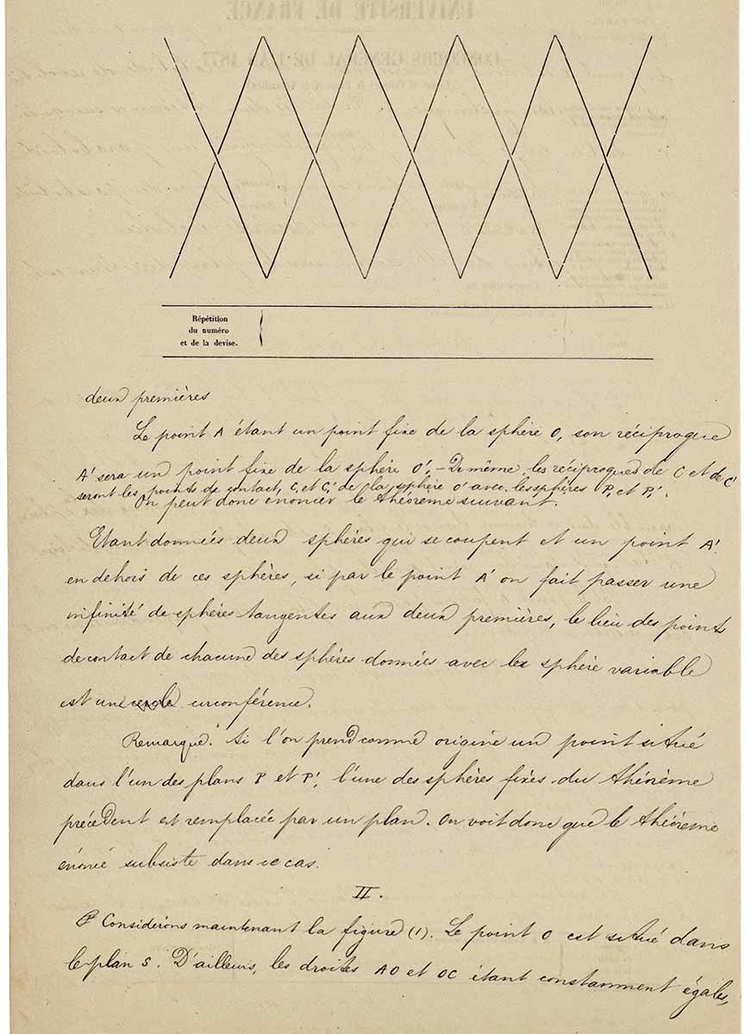 Répétition
du numéro
et de la devise.
deux premières
Le point A étant un point fixe de la sphère O, son réciproque
A' sera un point fixe de la sphère O'. – De même les réciproques de C et de C'
seront les points de contact, C, et C,' de la sphère O' avec les sphères P, et P,'.
On peut donc énoncer le théorème suivant.
Etant données deux sphères qui se coupent et un point A'
en dehors de ces sphères, si par le point A' on fait passer une
infinité de sphères tangentes aux deux premières, le lieu des points
de contact de chacune des sphères données avec la sphère variable
est une circonférence.
Remarque. Si l'on prend comme origine un point situé
dans l'un des plans P et P', l'une des sphères fixes du théorème
précédent est remplacée par un plan. On voit donc que le théorème
énoncé subsiste dans ce cas.
II.
Considérons maintenant la figure (1). Le point O est situé dans
le plan S. D'ailleurs, les droites AO et OC étant constamment égales,